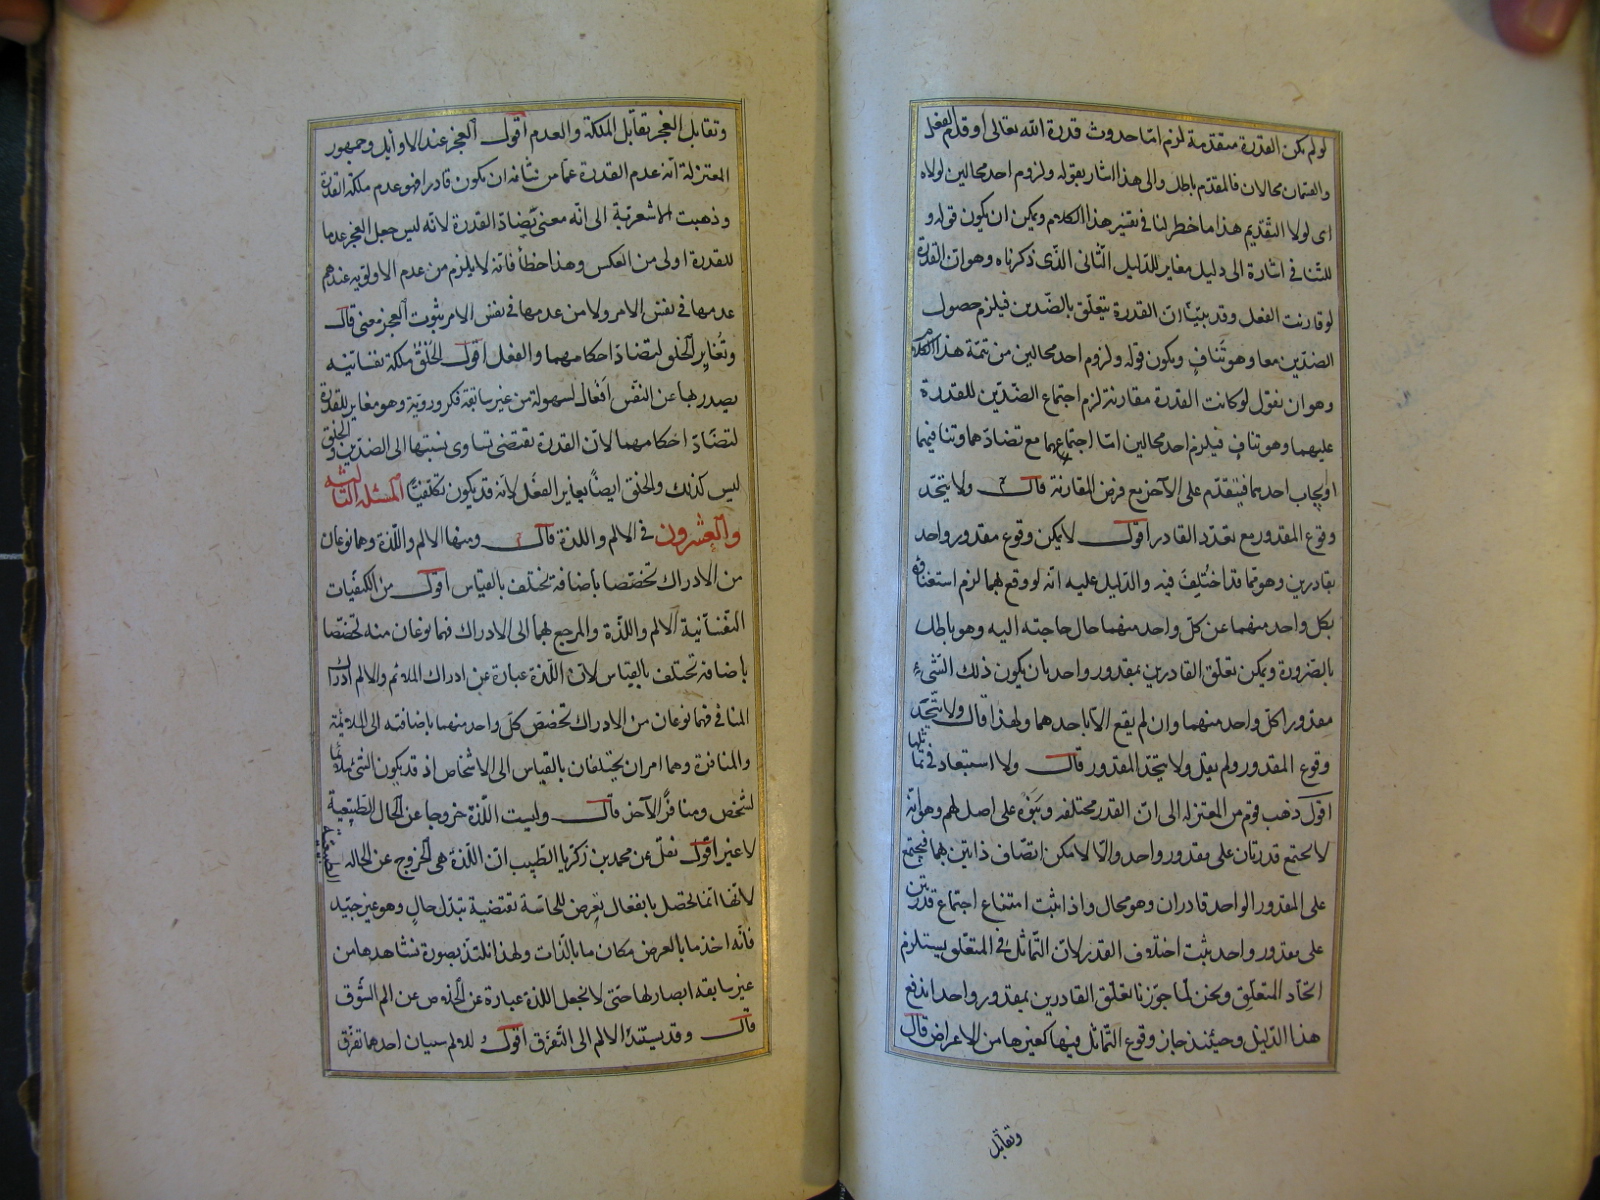 لو لم يكن القدرة متقدمة لزم اما حدوث قدرة الله تعالى او قدم الفعل
والقسمان محالان فالمقدم باطل والى هذا اشار بقوله ولزوم احد محالين لولاه
اى لولا التقديم هذا ما خطر لنا فى تفسير هذا الكلام ويمكن ان يكون قوله و
للتنافى اشارة الى دليل مغاير للدليل الثانى الذى ذكرناه وهو ان القدرة
لو قارنت الفعل وقد بينا ان القدرة يتعلق بالضدين فيلزم حصول
الضدين معا وهو تناف ويكون قوله ولزوم احد محالين من تتمة هذا الكلام
وهو ان نقول لو كانت القدرة مقارنة لزم اجتماع الضدين للقدرة
عليهما وهو تناف فيلزم احد محالين اما اجتماعهما مع تضادهما وتنافيهما
او ايجاب احدهما فيتقدم على الآخر مع فرض المقارنة قال ولا يتحد
وقوع المقدور مع تعدد القادر اقول لا يمكن وقوع مقدور واحد
بقادرين وهو مما قد اختلف فيه والدليل عليه انه لو وقع بهما لزم استغناؤه
بكل واحد منهما عن كل واحد منهما حال حاجته اليه وهو باطل
بالضرورة ويمكن تعلق القادرين بمقدور واحد بان يكون ذلك الشىء
مقدورا لكل واحد منهما وان لم يقع الا باحدهما ولهذا قال ولا يتحد
وقوع المقدور ولم يقل ولا يتحد المقدور قال ولا استبعاد فى تماثلها
اقول ذهب قوم من المعتزلة الى ان القدر مختلفه وبنوه على اصل لهم وهو انه
لا تجتمع قدرتان على مقدور واحد والا لامكن اتصاف ذاتين بهما فيجتمع
على المقدور الواحد قادران وهو محال واذا ثبت امتناع اجتماع قدرتين
على مقدور واحد ثبت اختلاف القدر لان التماثل فى المتعلق يستلزم
اتحاد المتعلق ونحن لما جوزنا تعلق القادرين بمقدور واحد اندفع
هذا الدليل وحينئذ جاز وقوع التماثل فيها كغيرها من الاعراض قال
وتقابل
وتقابل العجز تقابل الملكة والعدم اقول العجز عند الاوايل وجمهور
المعتزلة انه عدم القدرة عما من شانه ان يكون قادرا فهو عدم ملكة القدرة
وذهبت الاشعرية الى انه معنى يضاد القدرة لانه ليس جعل العجز عدما
للقدرة اولى من العكس وهذا خطأ فانه لا يلزم من عدم الاولوية عندهم
عدمها فى نفس الامر ولا من عدمها فى نفس الامر ثبوت العجز معنى قال
وتغاير الخلق لتضاد احكامهما والفعل اقول الخلق ملكة نفسانيه
يصدر بها عن النفس افعال لسهولة من غير سابقة فكر وروية وهو مغاير للقدرة
لتضاد احكامهما لان القدرة تقتضى تساوى نسبتها الى الضدين والخلق
ليس كذلك والخلق ايضا يغاير الفعل لانه قد يكون تكلفيا المسئلة الثالثة
والعشرون فى الالم واللذة قال ومنها الالم واللذة وهما نوعان
من الادراك تخصصا باضافة تختلف بالقياس اقول من الكيفيات
النفسانية الالم واللذة والمرجع بهما الى الادراك فهما نوعان منه تخصصا
باضافة تختلف بالقياس لان اللذة عبارة عن ادراك الملائم والالم ادراك
المنافى فهما نوعان من الادراك تخصص كل واحد منهما باضافته الى الملايمة
والمنافرة وهما امران يختلفان بالقياس الى الاشخاص اذ قد يكون الشئ ملائما
لشخص ومنافرا لآخر قال وليست اللذة خروجا عن الحال الطبيعية
لا غير اقول نقل عن محمد بن زكريا الطبيب ان اللذة هى الخروج عن الحالة الطبيعية
لانها انما تحصل بانفعال يعرض للحاسة تقتضية تبدل حال وهو غير جيد
فانه اخذ ما بالعرض مكان ما بالذات ولهذا نلتذ بصورة نشاهدها من
غير سابقه ابصار لها حتى لا نجعل اللذة عبارة عن الخلاص عن الم الشوق
قال وقد يستند الالم الى التفرق اقول للالم سببان احدهما تفرق